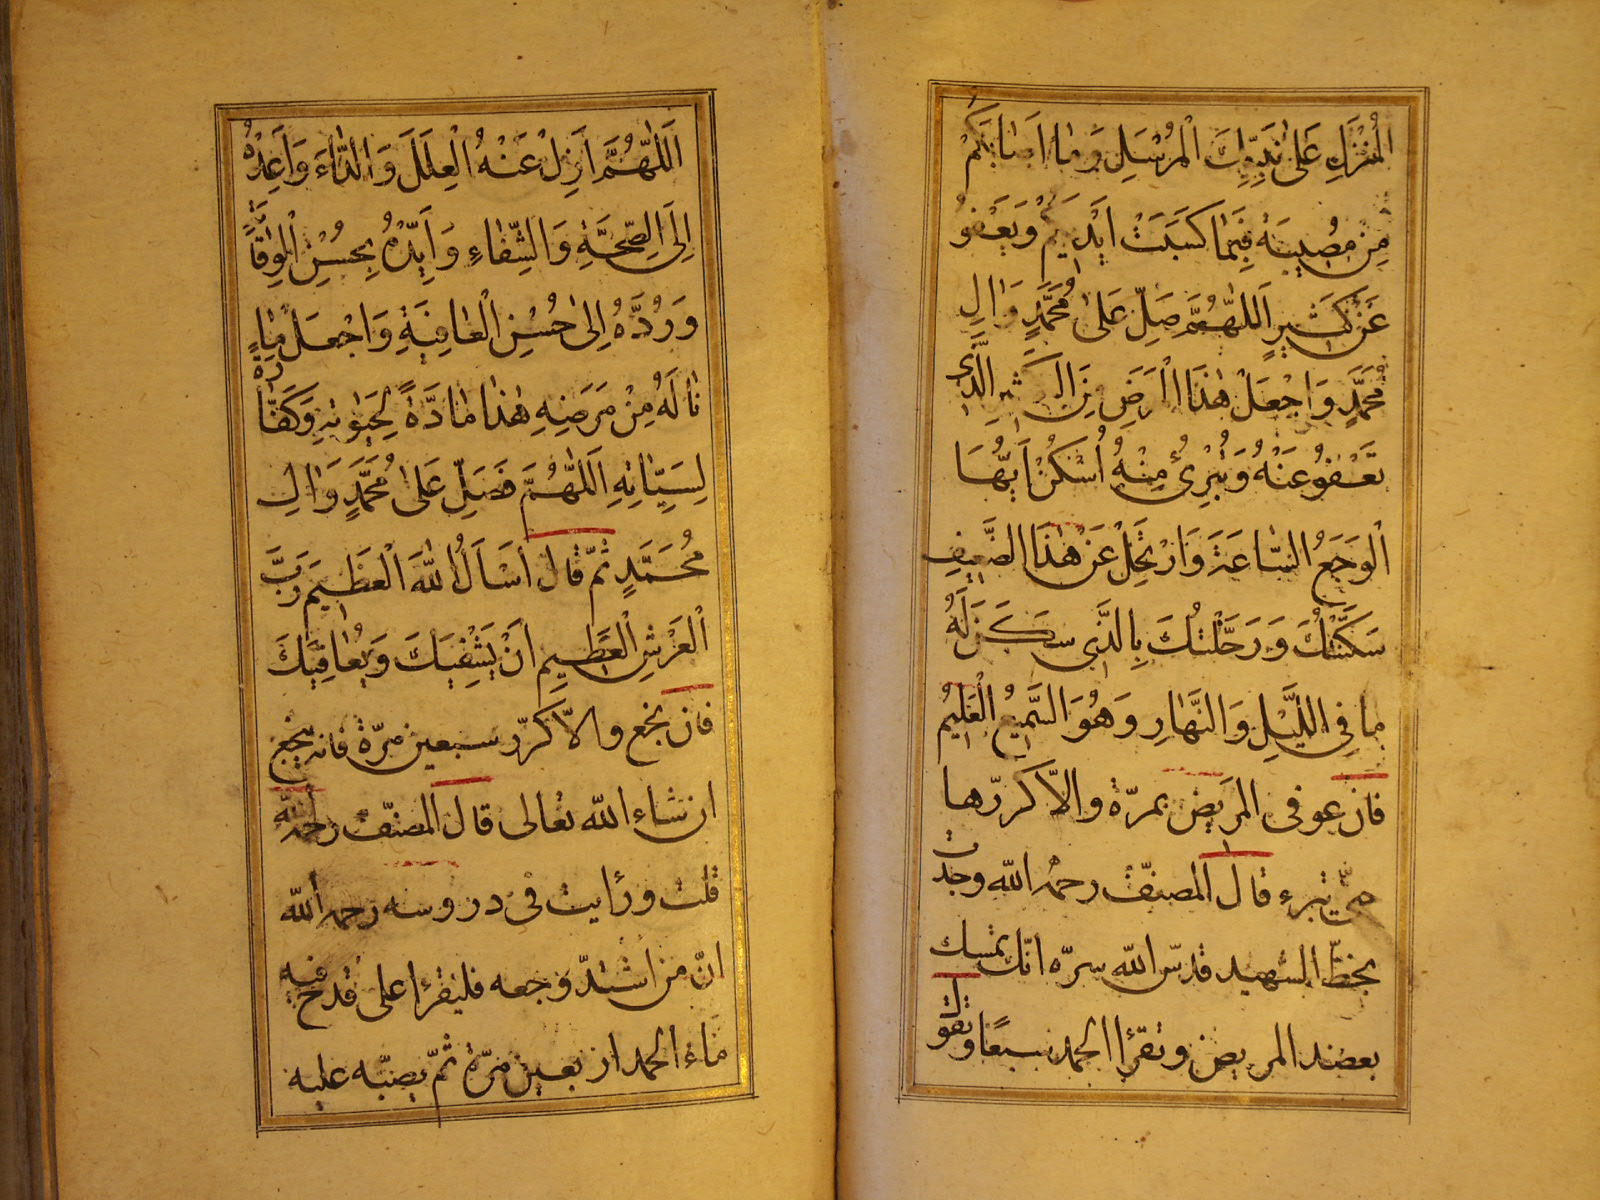 الْمُنْزَلِ عَلىٰ نَبِيِّكَ الْمُرْسَلِ وَمٰا اَصٰابَكُمْ
مِنْ مُصِيبَةٍ فَبِمٰا كَسَبَتْ اَيْدِيكُمْ وَيَعْفُو
عَنْ كَثِيرٍ اَللّٰهُمَّ صَلِّ عَلىٰ مُحَمَّدٍ وَاٰلِ
مُحَمَّدٍ وَاجْعَلْ هٰذَا الْمَرَضَ مِنَ الْكَثِيرِ الَّذِي
تَعْفُو عَنْهُ وَتُبْرِئُ مِنْهُ اُسْكُنْ اَيُّهَا
الْوَجَعُ السّٰاعَةَ وَارْتَحِلْ عَنْ هٰذَا الضَّعِيفِ
سَكَّنْتُكَ وَرَحَّلْتُكَ بِالَّذِي سَكَنَ لَهُ
مٰا فِي اللَّيْلِ وَالنَّهٰارِ وَهُوَ السَّمِيعُ الْعَلِيمُ
فان عوفى المريض بمرّة والاّ كررّها
حتّى تبرء قال المصنّف رحمه الله وجدت
بخطّ الشهيد قدّس الله سرّه انّك تمسك
بعضد المريض وتقرأ الحمد سبعًا وتقول
اَللّٰهُمَّ اَزِلْ عَنْهُ الْعِلَلَ وَالدّٰاءَ وَاَعِدْهُ
اِلَى الصِّحَّةِ وَالشِّفٰاءِ وَاَيِّدْهُ بِحُسْنِ الْوِقٰايَةِ
وَرُدَّهُ اِلىٰ حُسْنِ الْعٰافِيَةِ وَاجْعَلْ مٰا
نٰالَهُ مِنْ مَرَضِهِ هٰذٰا مٰادَّةً لِحَيٰوتِهِ وَكَفّٰارَةً
لِسَيِّئٰاتِهِ اَللّٰهُمَّ فَصَلِّ عَلىٰ مُحَمَّدٍ وَاٰلِ
مُحَمَّدٍ ثمّ قال اَسْاَلُ اللّٰهَ الْعَظِيمَ رَبَّ
الْعَرْشِ الْعَظِيمِ اَنْ يَشْفِيَكَ وَيُعٰافِيَكَ
فان نجع والاّ كرّر سبعين مرّة فانه ينجع
ان شاء الله تعالى قال المصنّف رحمه الله
قلت ورأيت فى دروسه رحمه الله
انّ من اشتدّ وجعه فليقرأ على قدح فيه
ماء الحمد اربعين مرّة ثمّ يصبّه عليه